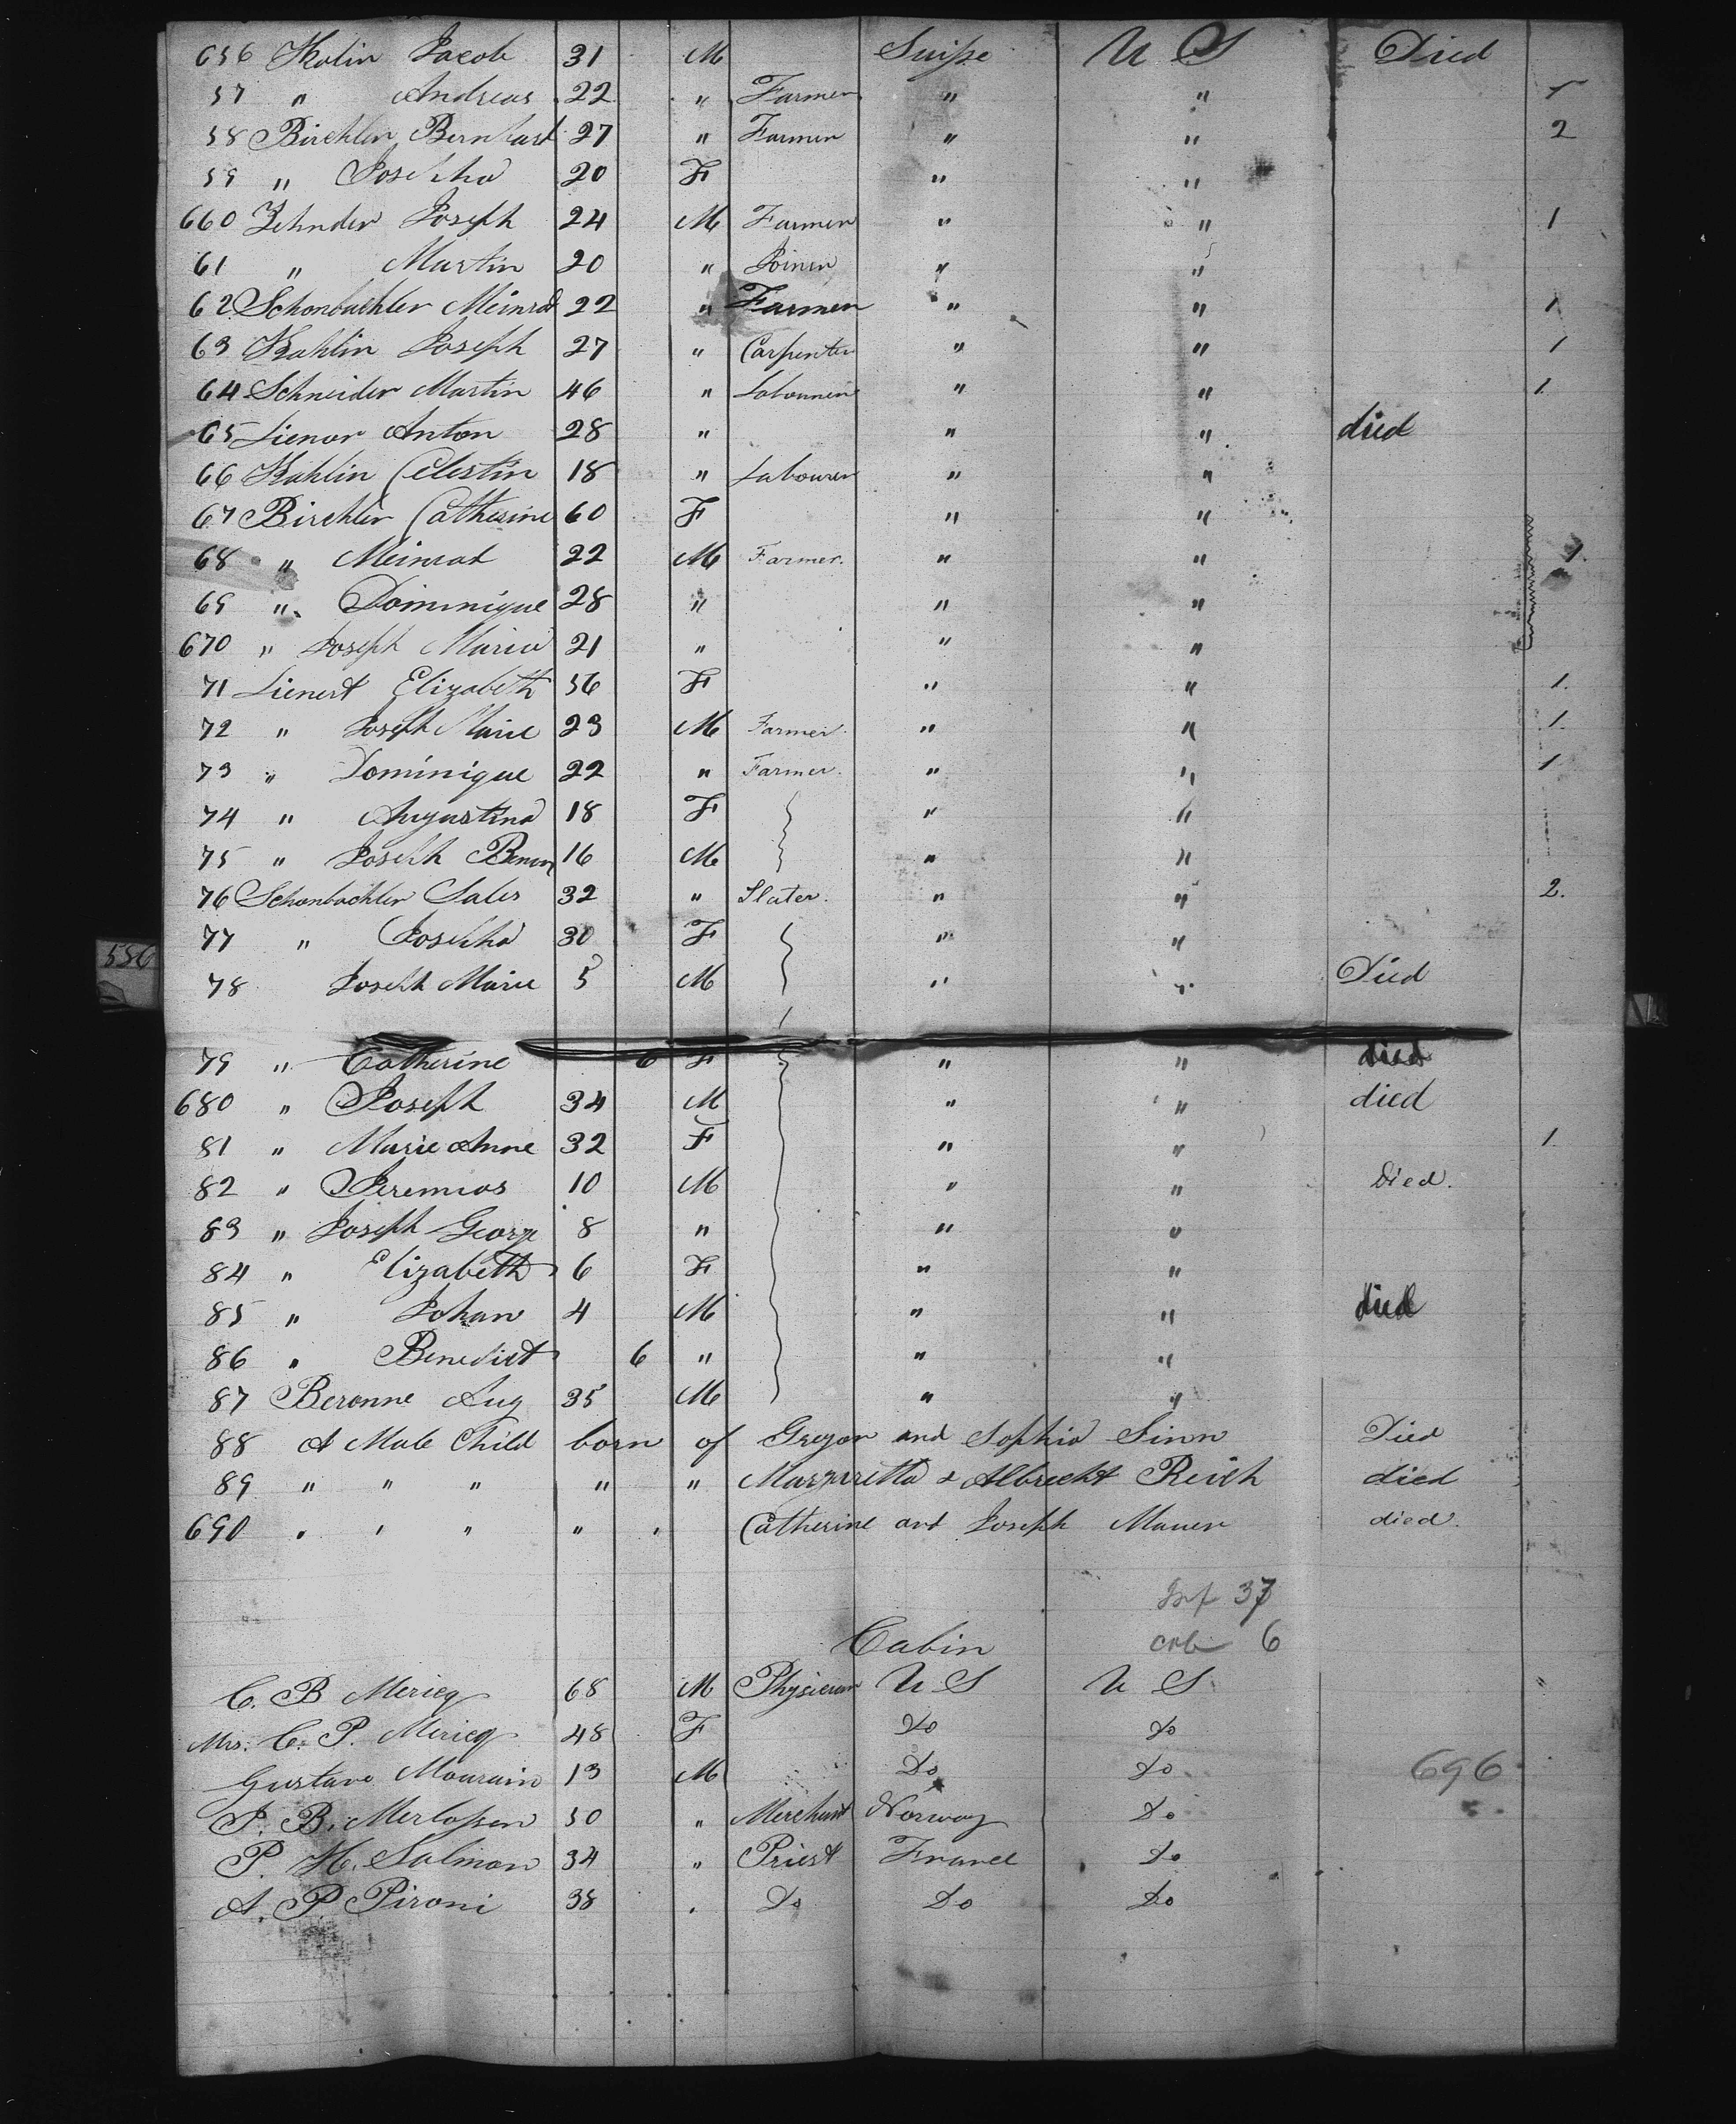 656 Kolin Jacob 31 M Suisse U S Died
57 " Andreas 22 " Farmer " " 1
58 Birchler Bernhart 27 " Farmer " " 2
59 " Josepha 20 F " "
660 Zehnder Joseph 24 M Farmer " " 1
61 " Martin 20 " Joiner " "
62 Schonbachler Meinrad 22 " Farmer " " 1
63 Kahlin Joseph 27 " Carpenter " " 1
64 Schneider Martin 46 " Labourer " " 1.
65 Lienor Anton 28 " " " died
66 Kahlin Celestin 18 " Labourer " "
67 Birchler Catherine 60 F " "
68 " Meinrad 22 M Farmer. " " 1.
69 " Dominique 28 " " "
670 " Joseph Marie 21 " " "
71 Lienert Elizabeth 56 F " " 1.
72 " Joseph Marie 23 M Farmer. " " 1.
73 " Dominique 22 " Farmer. " " 1
74 " Augustina 18 F " "
75 " Joseph 16 M " "
76 Schonbachler Sales 32 " Slater. " " 2.
77 " Josepha 30 F " "
78 Joseph Marie 5 M " " Died
580
79 " Catherine 6 F " " died
680 " Joseph 34 M " " died
81 " Marie Anne 32 F " " 1
82 " Jeremias 10 M " " Died.
83 " Joseph George 8 " " "
84 " Elizabeth 6 F " "
85 " Johan 4 M " " died
86 " Benedict 6 " " "
87 Beronne Aug 35 M " "
88 A Male Child born of Gregor and Sophia Sinn Died
89 " " " " " Margaretta & Albrecht Reich died
690 " " " " " Catherine and Joseph Maurer died.
Inf 37
Cabin cab 6
C. B Mericq 68 M Physician U S U S
Mrs. C. P. Mericq 48 F Do Do
Gustave Mourain 13 M Do Do 696
P. B. Merlossen 50 " Merchant Norway Do
P. H. Salmon 34 " Priest France Do
A. P. Pironi 38 " Do Do Do